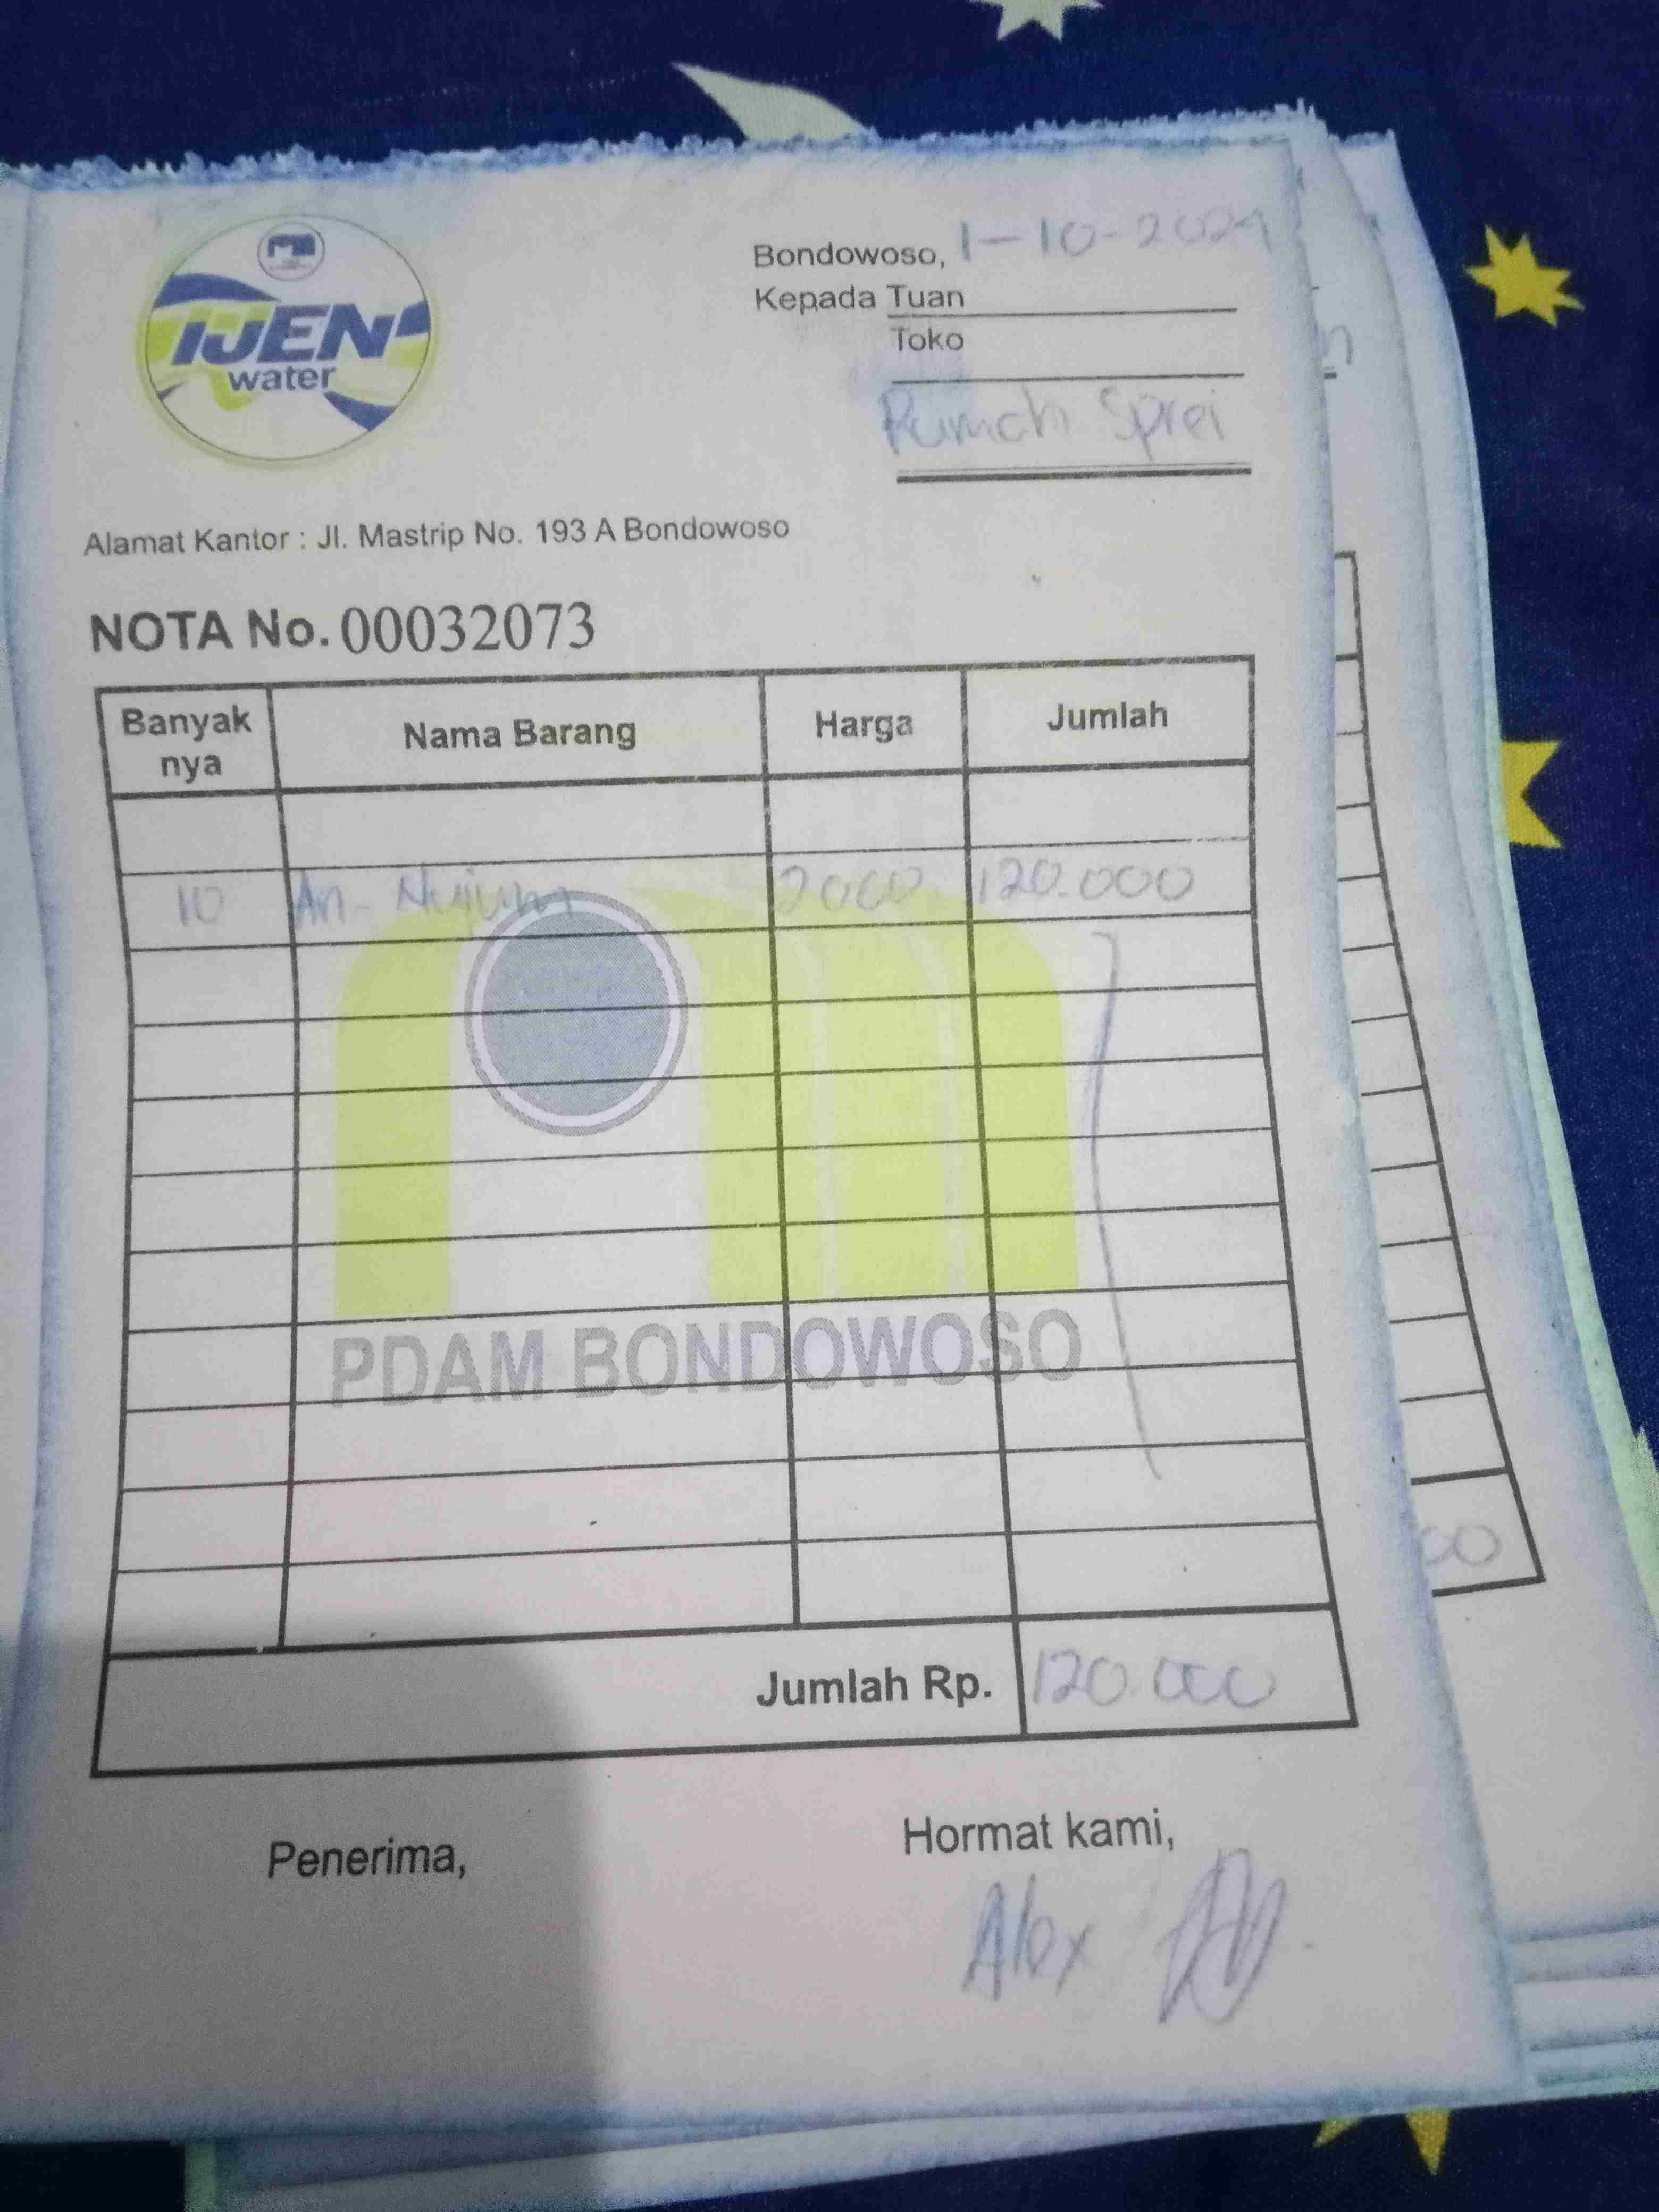 IJEN
water
Bondowoso, 1-10-2024
Kepada Tuan
Toko
Rumah Sprei
Alamat Kantor : Jl. Mastrip No. 193 A Bondowoso
NOTA No. 00032073
Banyak nya Nama Barang Harga Jumlah
10 An-Nujum 2000 120.000
PDAM BONDOWOSO
Jumlah Rp. 120.000
Penerima,
Hormat kami,
Alex